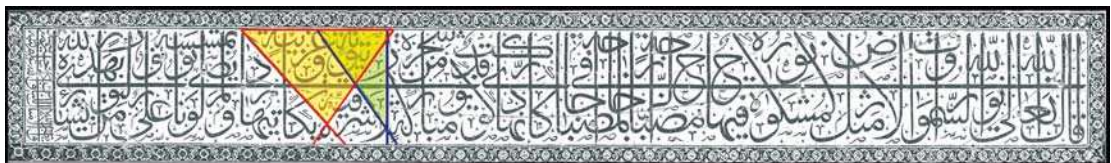 قال الله تعالى الله نور السموات والارض مثل نوره كمشكوة فيها مصباح المصباح في زجاجة الزجاجة كانها كوكب دري يوقد من شجرة مباركة زيتونة لا شرقية ولا غربية يكاد زيتها يضيء ولو لم تمسسه نار نور على نور يهدي الله لنوره من يشاء